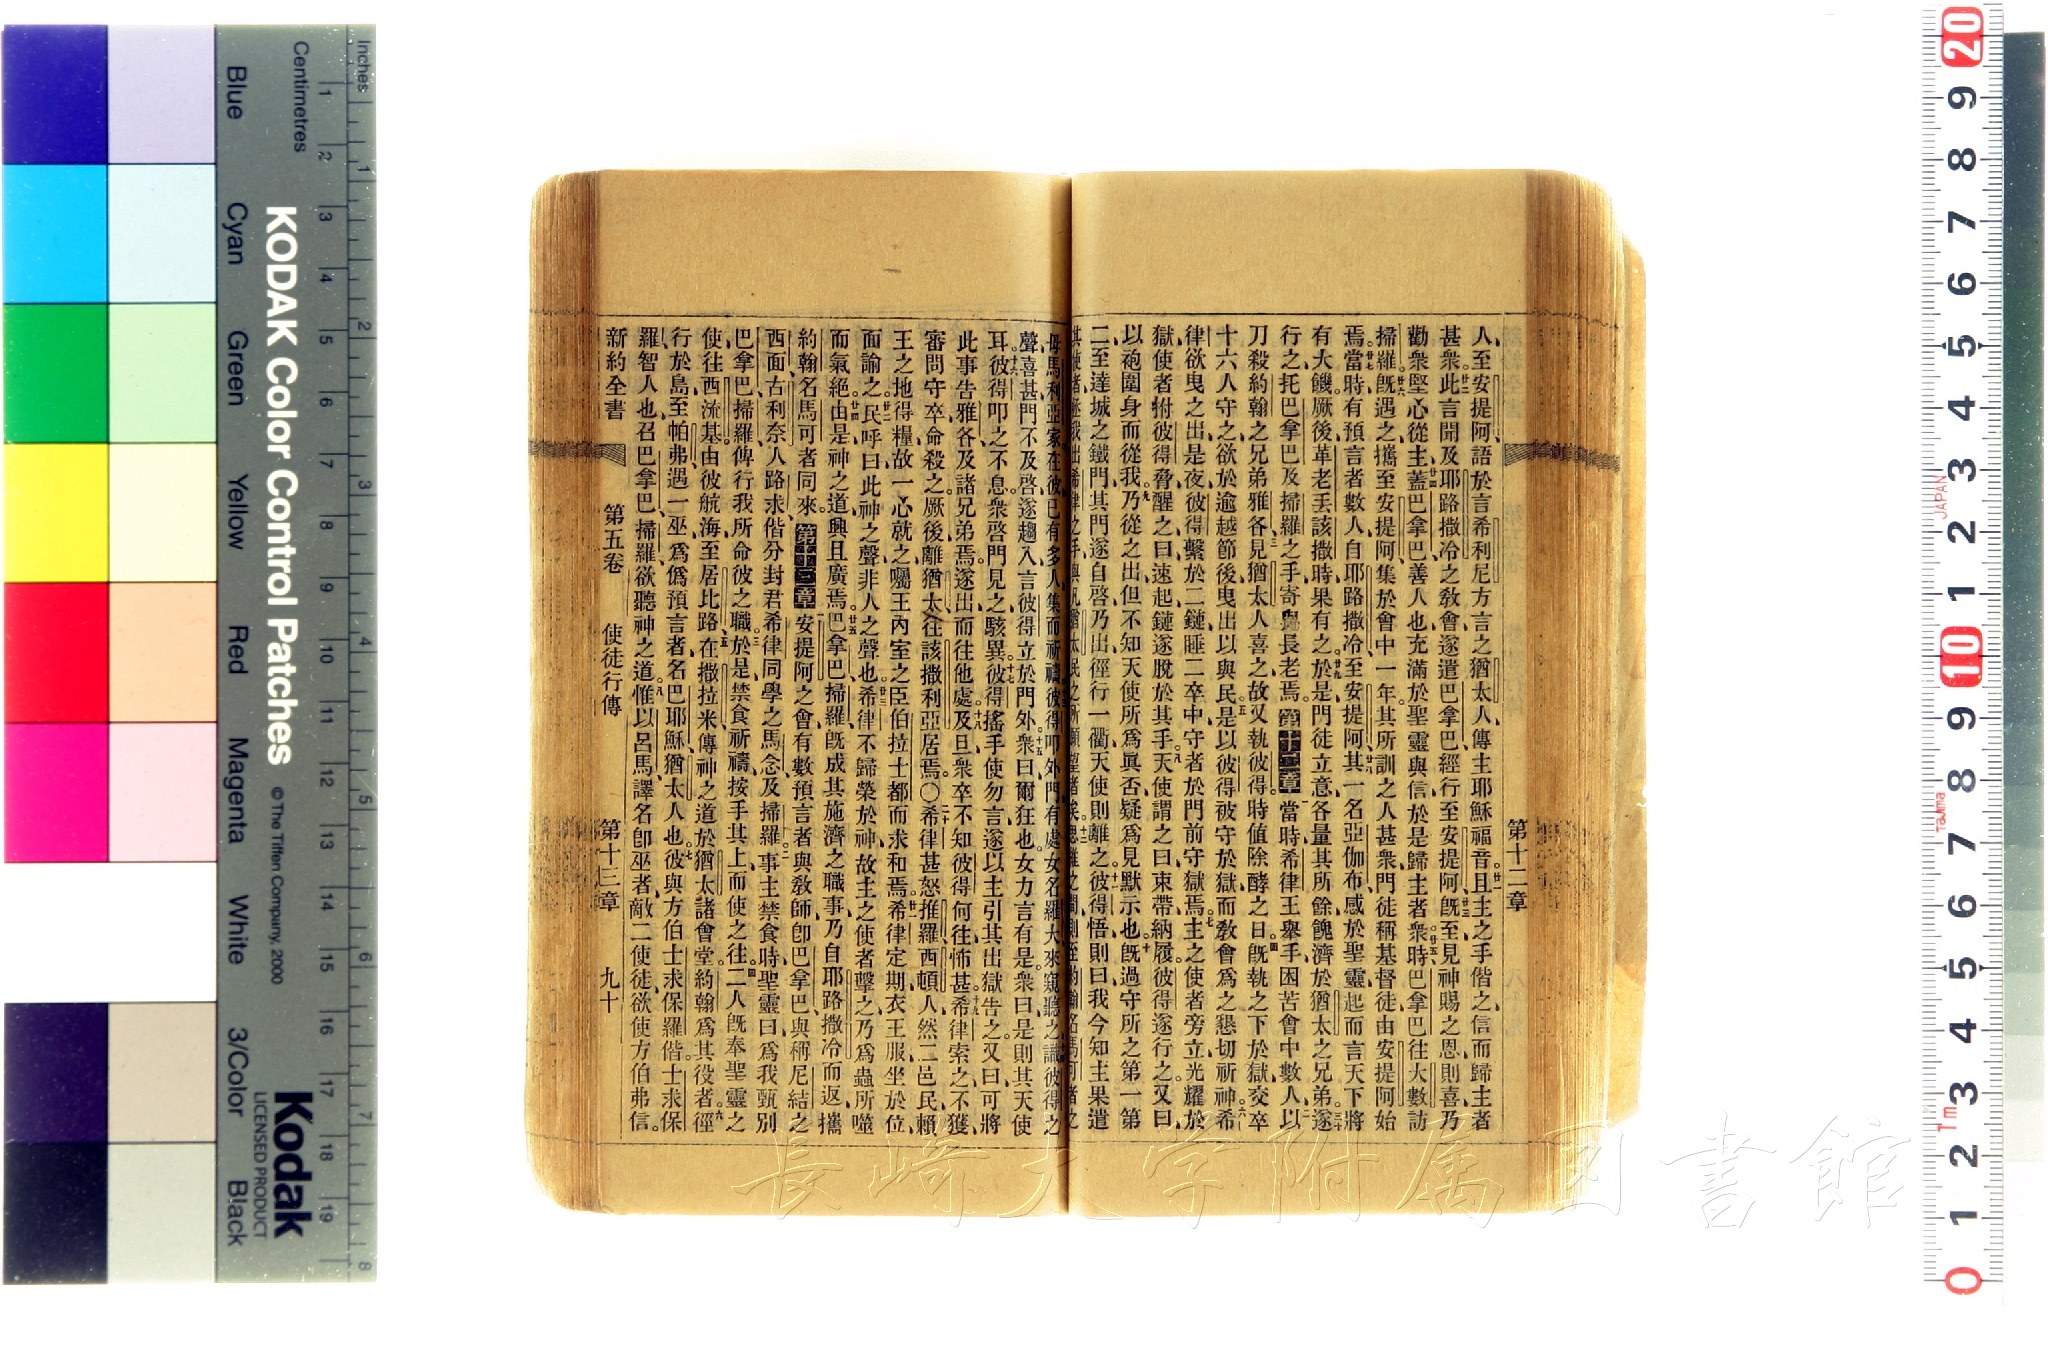 第十二章
人至安提阿語於言希利尼方言之猶太人傳主耶穌福音且主之手偕之信而歸主者
甚衆此言聞及耶路撒冷之教會遂遣巴拿巴經行至安提阿旣至見神賜之恩則喜乃
勸衆堅心從主蓋巴拿巴善人也充滿於聖靈與信於是歸主者衆時巴拿巴往大數訪
掃羅旣遇之攜至安提阿集於會中一年其所訓之人甚衆門徒稱基督徒由安提阿始
焉當時有預言者數人自耶路撒冷至安提阿其一名亞伽布感於聖靈起而言天下將
有大饑厥後革老丢該撒時果有之於是門徒立意各量其所餘餽濟於猶太之兄弟遂
行之托巴拿巴及掃羅之手寄與長老焉第十二章當時希律王舉手困苦會中數人以
刀殺約翰之兄弟雅各見猶太人喜之故又執彼得時值除酵之日旣執之下於獄交卒
十六人守之欲於逾越節後曳出以與民是以彼得被守於獄而教會爲之懇切祈神希
律欲曳之出是夜彼得繫於二鏈睡二卒中守者於門前守獄焉主之使者旁立光耀於
獄使者拊彼得脅醒之曰速起鏈遂脫於其手天使謂之曰束帶納履彼得遂行之又曰
以袍圍身而從我乃從之出但不知天使所爲眞否疑爲見默示也旣過守所之第一第
二至達城之鐵門其門遂自啓乃出徑行一衢天使則離之彼得悟則曰我今知主果遣
其使者拯我出希律之手與凡猶太民之所願望者矣思維之間則至約翰名馬可者之
母馬利亞家在彼已有多人集而祈禱彼得叩外門有處女名羅大來窺聽之識彼得之
聲喜甚門不及啓遂趨入言彼得立於門外衆曰爾狂也女力言有是衆曰是則其天使
耳彼得叩之不息衆啓門見之駭異彼得搖手使勿言遂以主引其出獄告之又曰可將
此事告雅各及諸兄弟焉遂出而往他處及旦衆卒不知彼得何往怖甚希律索之不獲
審問守卒命殺之厥後離猶太往該撒利亞居焉〇希律甚怒推羅西頓人然二邑民賴
王之地得糧故一心就之囑王內室之臣伯拉士都而求和焉希律定期衣王服坐於位
面諭之民呼曰此神之聲非人之聲也希律不歸榮於神故主之使者擊之乃爲蟲所噬
而氣絕由是神之道興且廣焉巴拿巴掃羅旣成其施濟之職事乃自耶路撒冷而返攜
約翰名馬可者同來第十三章安提阿之會有數預言者與教師卽巴拿巴與稱尼結之
西面古利奈人路求偕分封君希律同學之馬念及掃羅事主禁食時聖靈曰爲我甄別
巴拿巴掃羅俾行我所命彼之職於是禁食祈禱按手其上而使之往二人旣奉聖靈之
使往西流基由彼航海至居比路在撒拉米傳神之道於猶太諸會堂約翰爲其役者徑
行於島至帕弗遇一巫爲僞預言者名巴耶穌猶太人也彼與方伯士求保羅偕士求保
羅智人也召巴拿巴掃羅欲聽神之道惟以呂馬譯名卽巫者敵二使徒欲使方伯弗信
新約全書 第五卷 使徒行傳 第十三章 九十
長崎大学附属図書館
Inches
Centimetres
Blue Cyan Green Yellow Red Magenta White 3/Color Black
KODAK Color Control Patches © The Tiffen Company, 2000
Kodak
LICENSED PRODUCT
1 2 3 4 5 6 7 8 9 10 11 12 13 14 15 16 17 18 19
1 2 3 4 5 6 7 8
20 9 8 7 6 5 4 3 2 1 10 9 8 7 6 5 4 3 2 1 0
JAPAN
Tajima